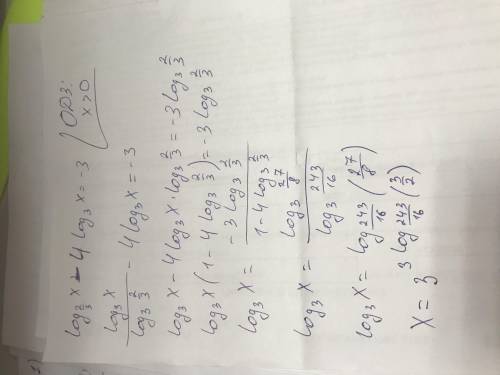 log_{2/3} x - 4 log_3 x = -3 (ОДЗ: x>0
\frac{log_3 x}{log_3 \frac{2}{3}} - 4 log_3 x = -3
log_3 x - 4 log_3 x · log_3 \frac{2}{3} = -3 log_3 \frac{2}{3}
log_3 x (1 - 4 log_3 \frac{2}{3}) = -3 log_3 \frac{2}{3}
log_3 x = \frac{-3 log_3 \frac{2}{3}}{1 - 4 log_3 \frac{2}{3}}
log_3 x = \frac{log_3 \frac{27}{8}}{log_3 \frac{243}{16}}
log_3 x = log_{\frac{243}{16}} (\frac{27}{8})
x = 3^{3 log_{\frac{243}{16}} (\frac{3}{2})}